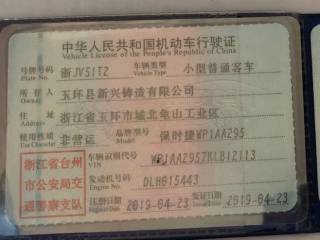 中华人民共和国机动车行驶证
Vehicle License of the People's Republic of China
号牌号码 浙JV51T2 车辆类型 小型普通客车
Plate No. Vehicle Type
所有人 玉环县新兴铸造有限公司
Owner
住址 浙江省玉环市城北龟山工业区
Address
使用性质 非营运 品牌型号 保时捷WP1AA295
Use Character Model
浙江省台州
市公安局交
通警察支队
车辆识别代号 WP1AA2957KLB12113
VIN
发动机号码 DLH015443
Engine No.
注册日期 2019-04-23 发证日期 2019-04-23
Register Date Issue Date